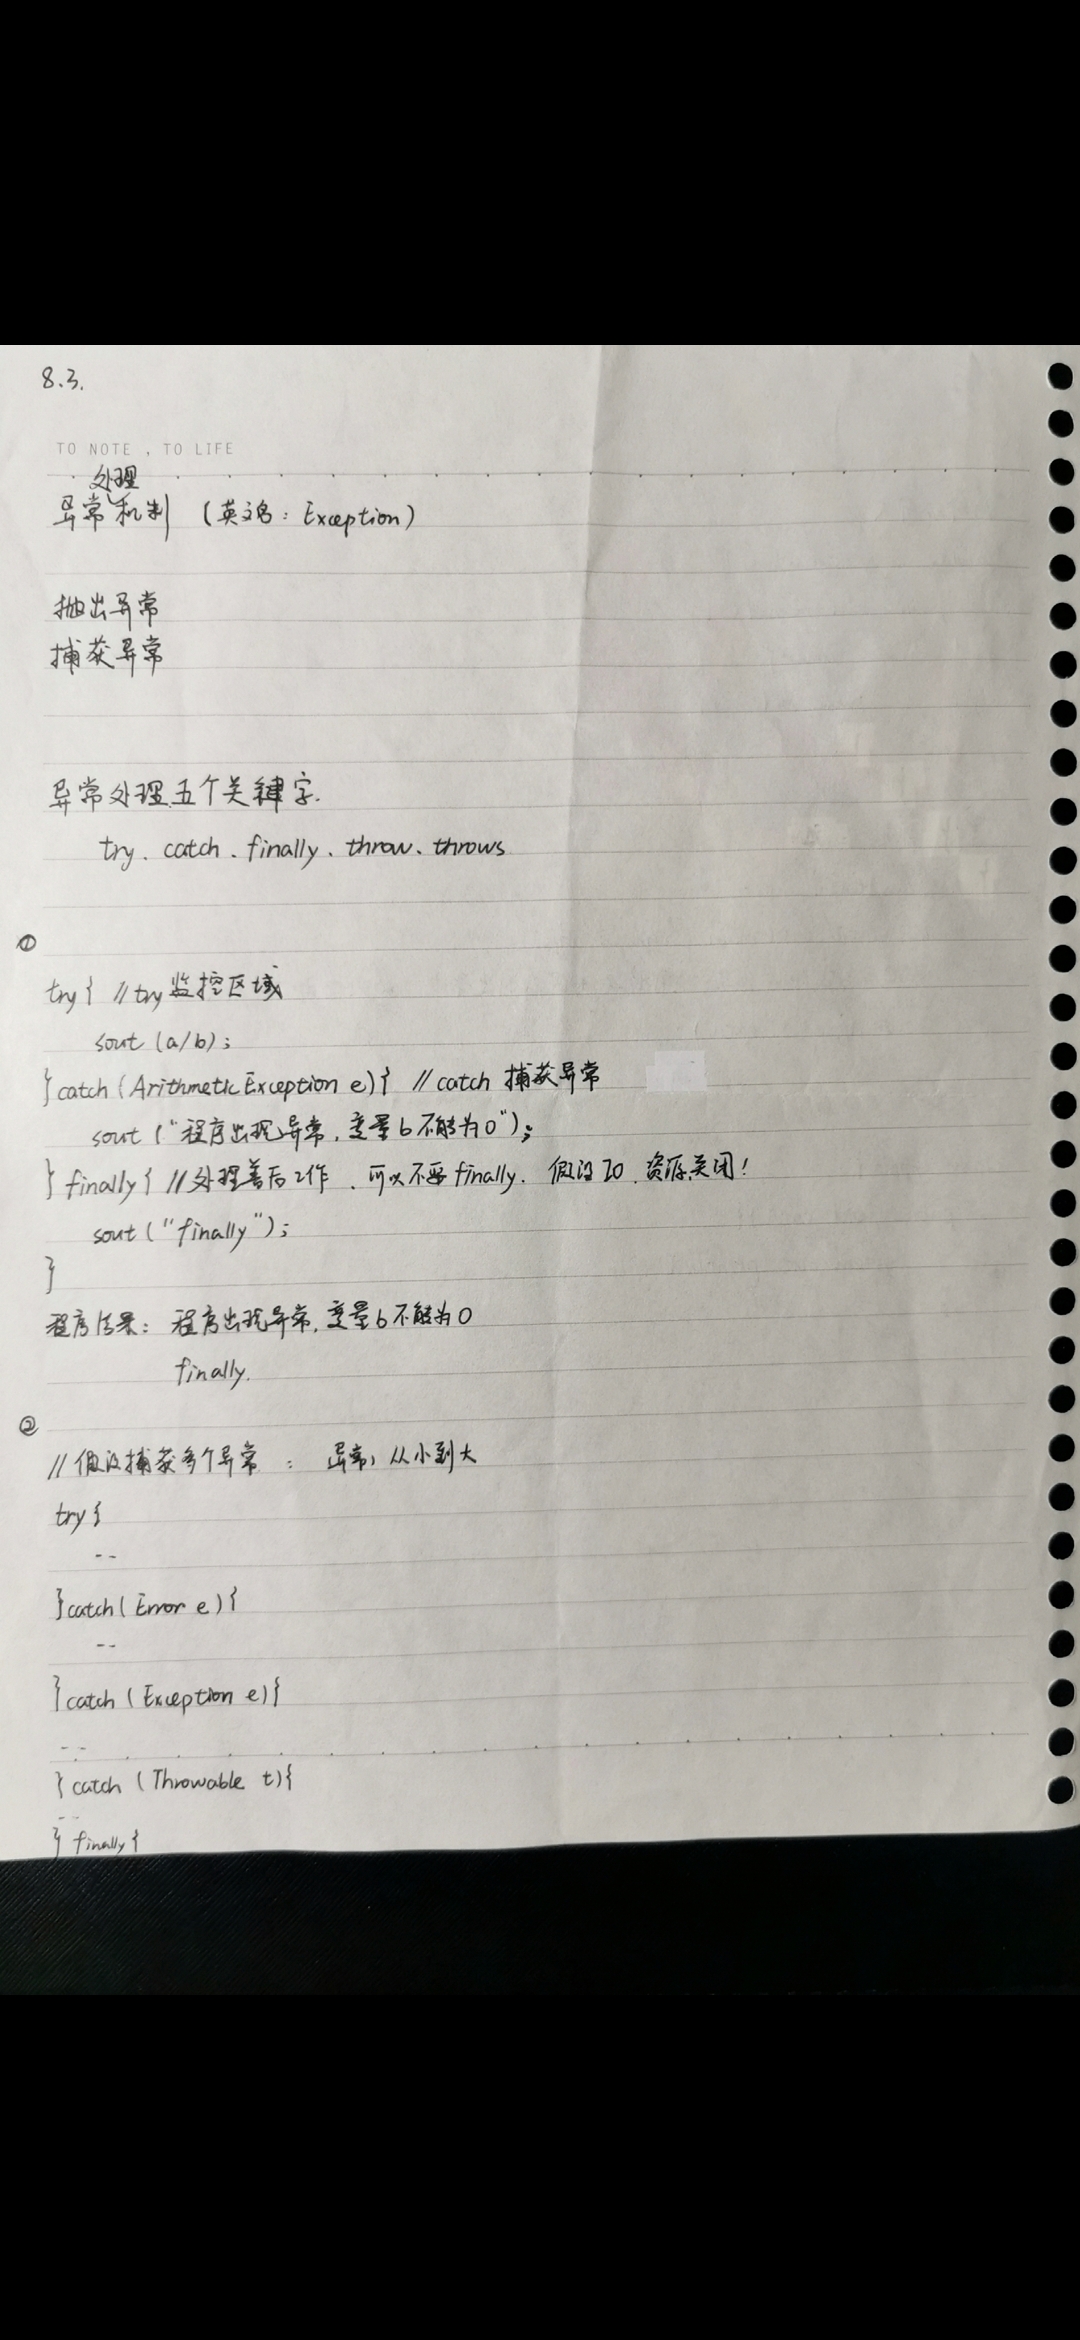 8.3.
TO NOTE , TO LIFE
处理
异常机制 （英文名：Exception）
抛出异常
捕获异常
异常处理五个关键字.
try、catch、finally、throw、throws
①
try{ //try监控区域
sout (a/b);
}catch (ArithmeticException e){ //catch 捕获异常
sout ("程序出现异常，变量b不能为0");
} finally{ //处理善后工作，可以不要finally. 假设IO、资源关闭！
sout ("finally");
}
程序结果：程序出现异常，变量b不能为0
finally.
②
//假设捕获多个异常 ： 异常，从小到大
try{
--
}catch( Error e){
--
}catch ( Exception e){
--
}catch ( Throwable t){
--
} finally{